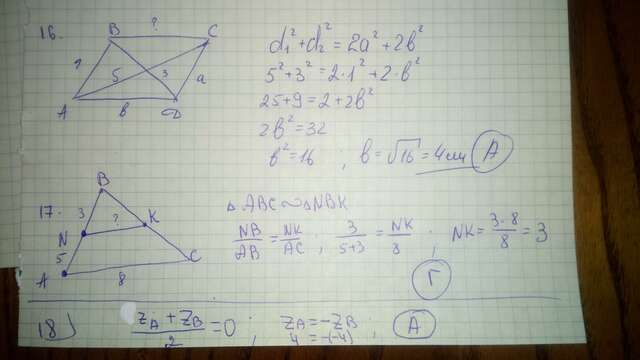 16.
B ? C
? 5 3 a
A b D
d₁² + d₂² = 2a² + 2b²
5² + 3² = 2·1² + 2·b²
25 + 9 = 2 + 2b²
2b² = 32
b² = 16 ; b = √16 = 4см (A)
17.
B
3 ? K
N
5 C
A 8
△ABC ∾ △NBK
NB/AB = NK/AC ; 3/(5+3) = NK/8 ; NK = (3·8)/8 = 3
(Г)
18)
(z_A + z_B)/2 = 0 ; z_A = -z_B ; (A)
4 = -(-4)